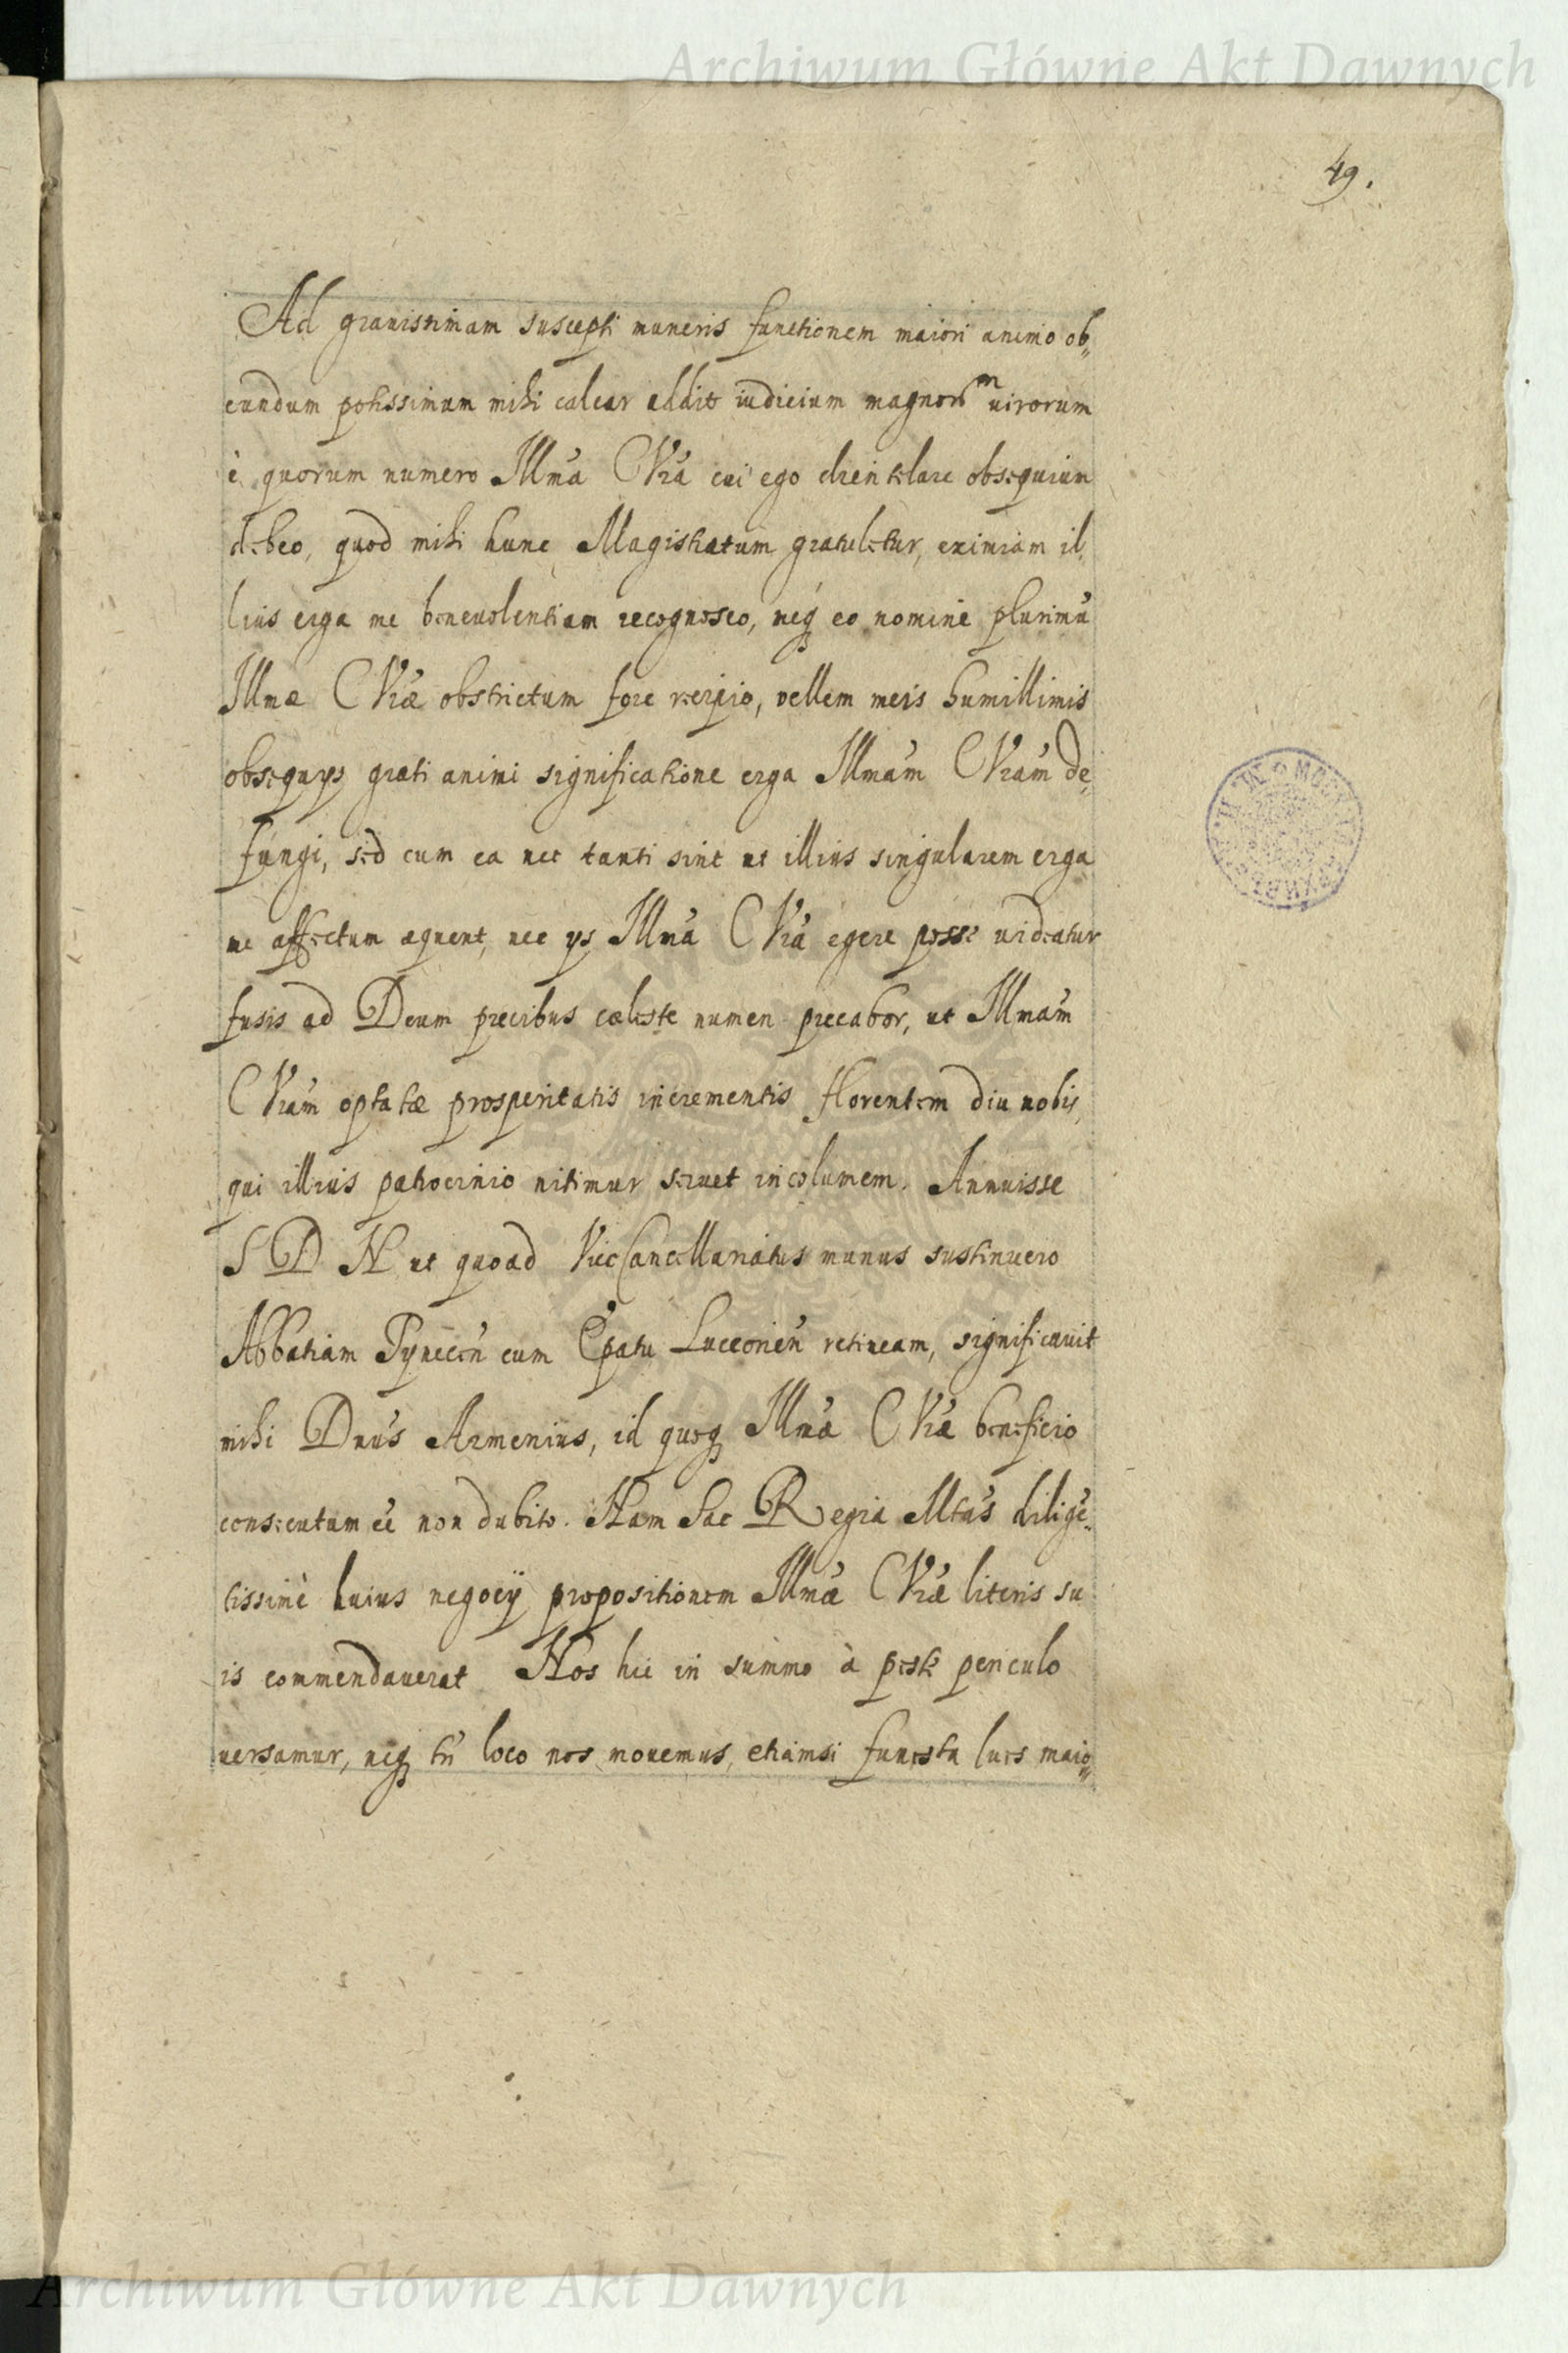 Archiwum Główne Akt Dawnych
49.
Ad grauissimam suscepti muneris functionem maiori animo ob„
eundum potissimum mihi calcar addit iudicium magnorum uirorum
è quorum numero Illma Vra cui ego clientelare obsequium
debeo, quod mihi hunc Magistratum gratuletur, eximiam il,
lius erga me beneuolentiam recognosco, neq eo nomine plurimū
Illmæ Vræ obstrictum fore recipio, vellem meis humillimis
obsequys grati animi significatione erga Illmam Vram de„
fungi, sed cum ea nec tanti sint ut illius singularem erga
me affectum æquent, nec ys Illma Vra egere posse uideatur
fusis ad Deum precibus cœleste numen precabor, ut Illmam
Vram optatæ prosperitatis incrementis florentem diu nobis,
qui illius patrocinio nitimur seruet incolumem. Annuisse
S D N ut quoad ViceCancellariatus munus sustinuero
Abbatiam Tynecen cum Epatu Luceorien retineam, significauit
mihi Dnus Armenius, id quoq Illmæ Vræ beneficio
consecutum eē non dubito. Nam Sac Regia Mtas diligē„
tissimè huius negocÿ propositionem Illmæ Vræ literis su
is commendauerat Nos hic in summo à peste periculo
uersamur, neq tn loco nos mouemus, etiamsi funesta lues maio„
Archiwum Główne Akt Dawnych